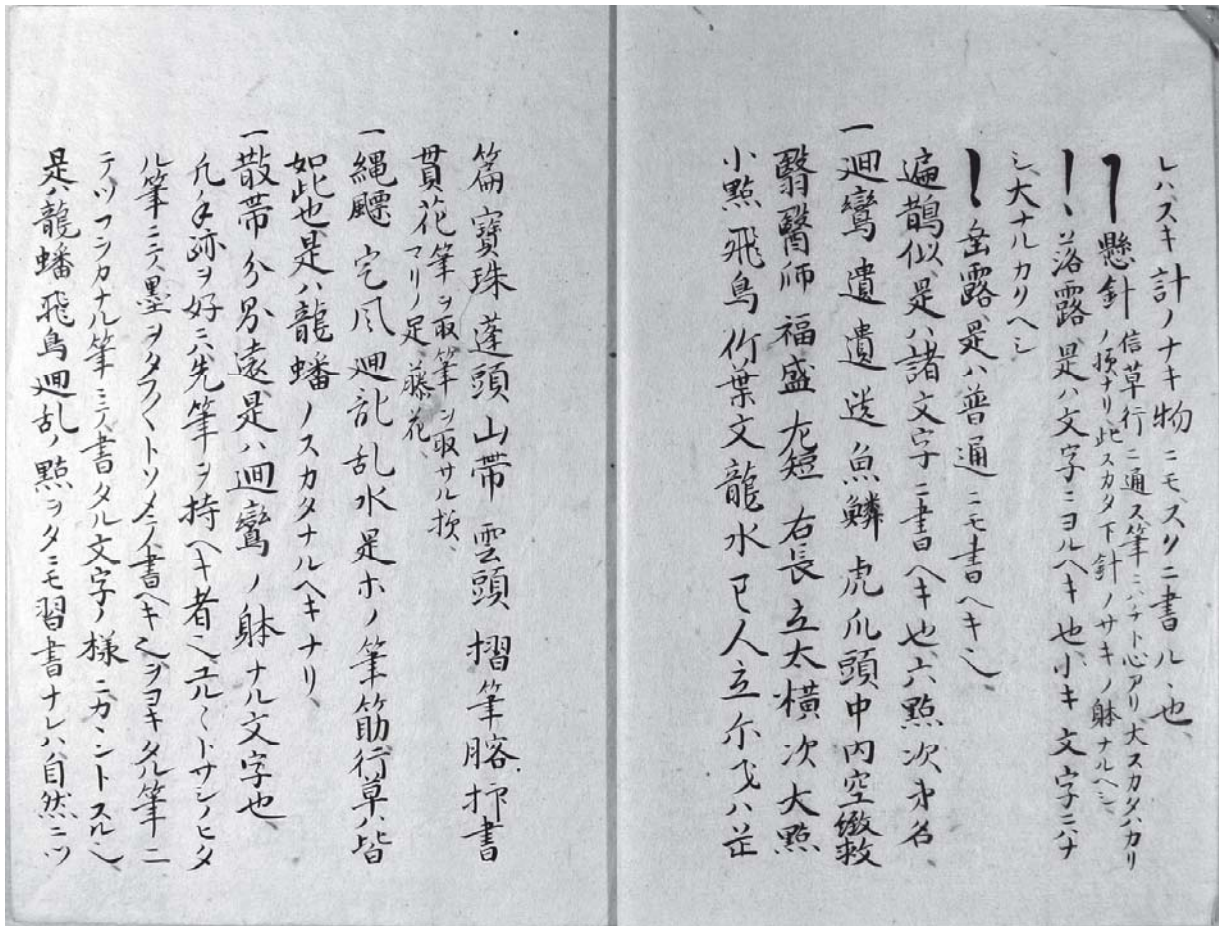 レハスキ計ノナキ物ニモ、スリニ書ル、也、
懸針 信草行ニ通ス筆ニハチト心アリ、大スカタハカリ
ノ損ナリ、此スカタ下針ノサキノ躰ナルヘシ
落露、是ハ文字ニヨルヘキ也、小キ文字ニハナ
シ、大ナルカリヘシ
垂露、是ハ普通ニモ書ヘキ也、
遍鵲似、是ハ諸文字ニ書ヘキ也、六點次第名、
一廻鸞 遺 遺 送 魚鱗 虎爪頭中内空緻救
翳醫師 福盛 左短 右長立太横次大點
小點飛鳥竹葉文龍水 已人立尓戈ハ芷
篇寶珠蓬頭山帯 雲頭 摺筆 䐧抑書
貫花 筆ヲ取筆ヲ取サル損、
マリノ足、藤花、
一縄飃 宅風廻乱乱水是ホノ筆筋行草ハ皆
如此也、是ハ龍蟠ノスカタナルヘキナリ、
一散帯 分界遠、是ハ廻鸞ノ躰ナル文字也、
凡手跡ヲ好ニハ先筆ヲ持ヘキ者也、ユル〳〵トサシノヒタ
ル筆ニテ、墨ヲタフ〳〵トソメテ書ヘキ也、ヲヨキタル筆ニ
テツフシカナル筆ニテ書タル文字ノ様ニカヽントスル也、
是ハ龍蟠飛鳥廻乱ノ點ヲタニモ習書ナレハ、自然ニツ